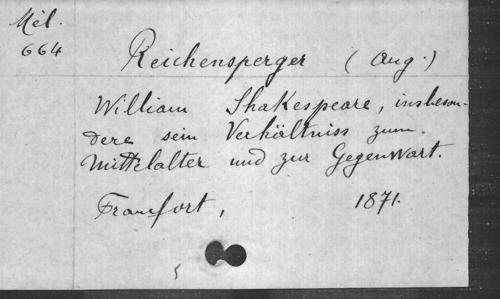 Mél.
664
Reichensperger (Aug.)
William Shakespeare, insbeson-
dere sein Verhältniss zum
Mittelalter und zur Gegenwart.
Francfort, 1871.